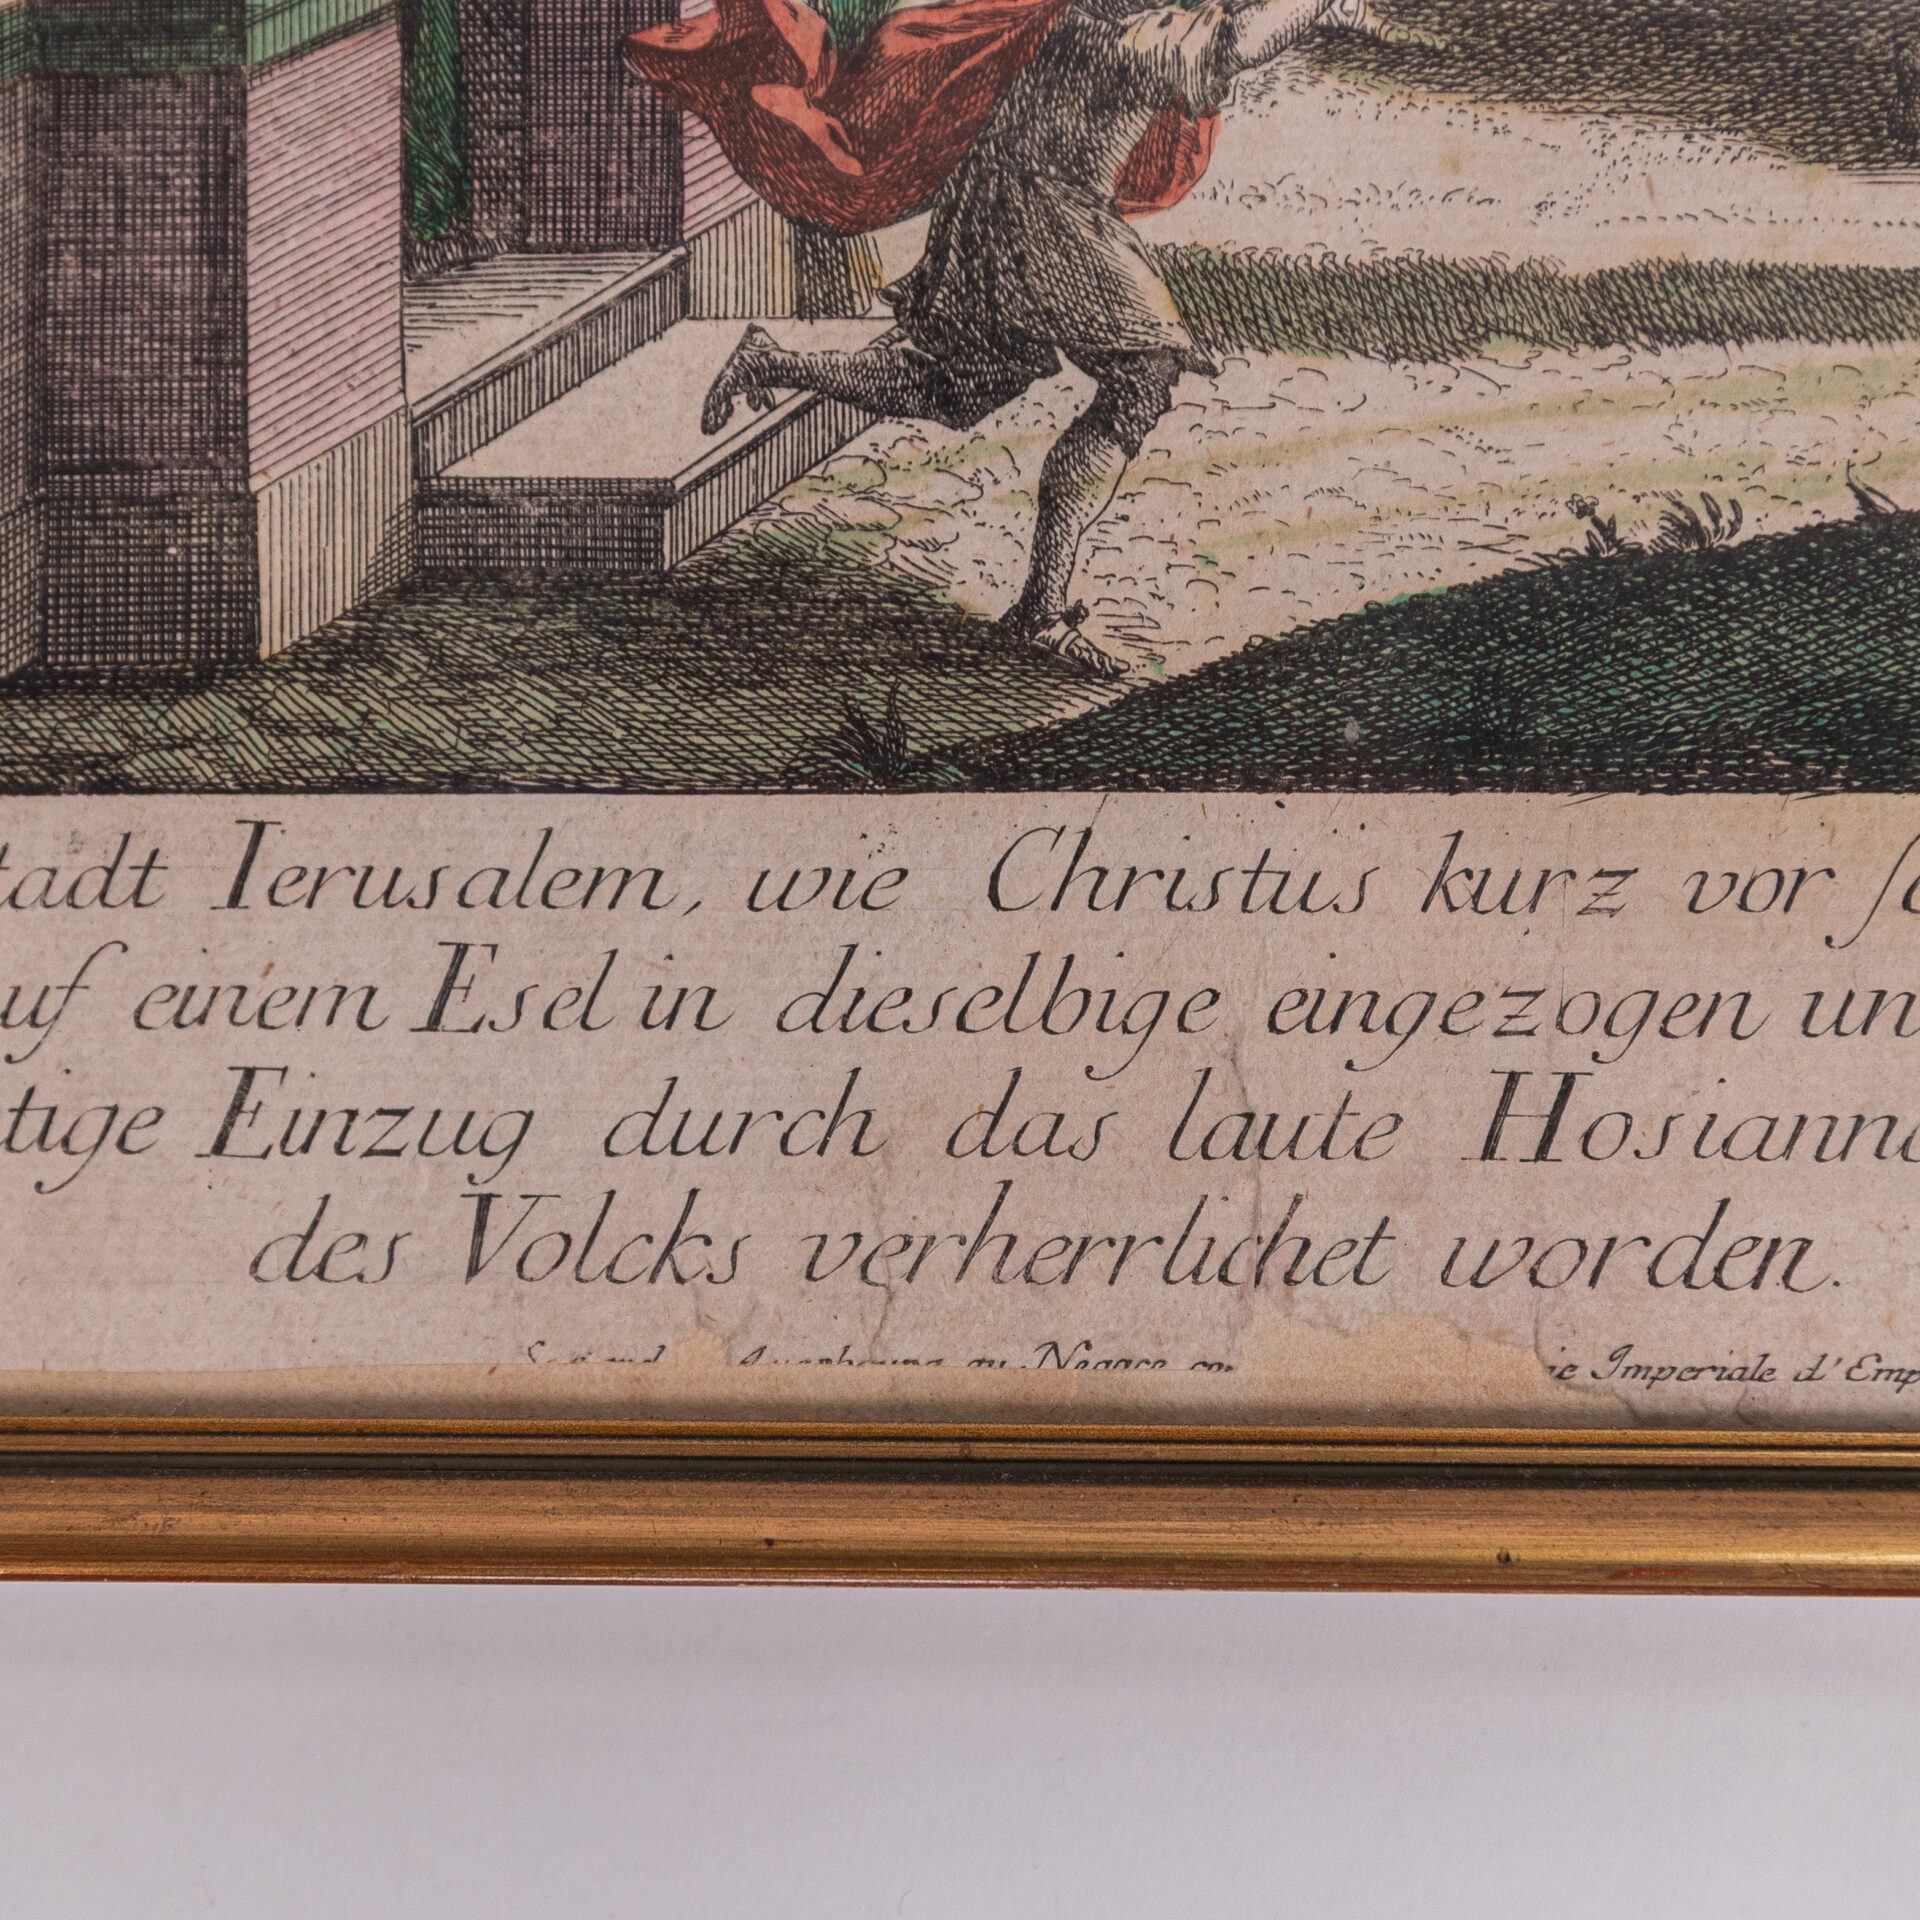 tadt Ierusalem, wie Christus kurz vor ſe
uf einem Esel in dieselbige eingezogen un
tige Einzug durch das laute Hosianna
des Volcks verherrlichet worden.
Negoce ie Imperiale d'Emp